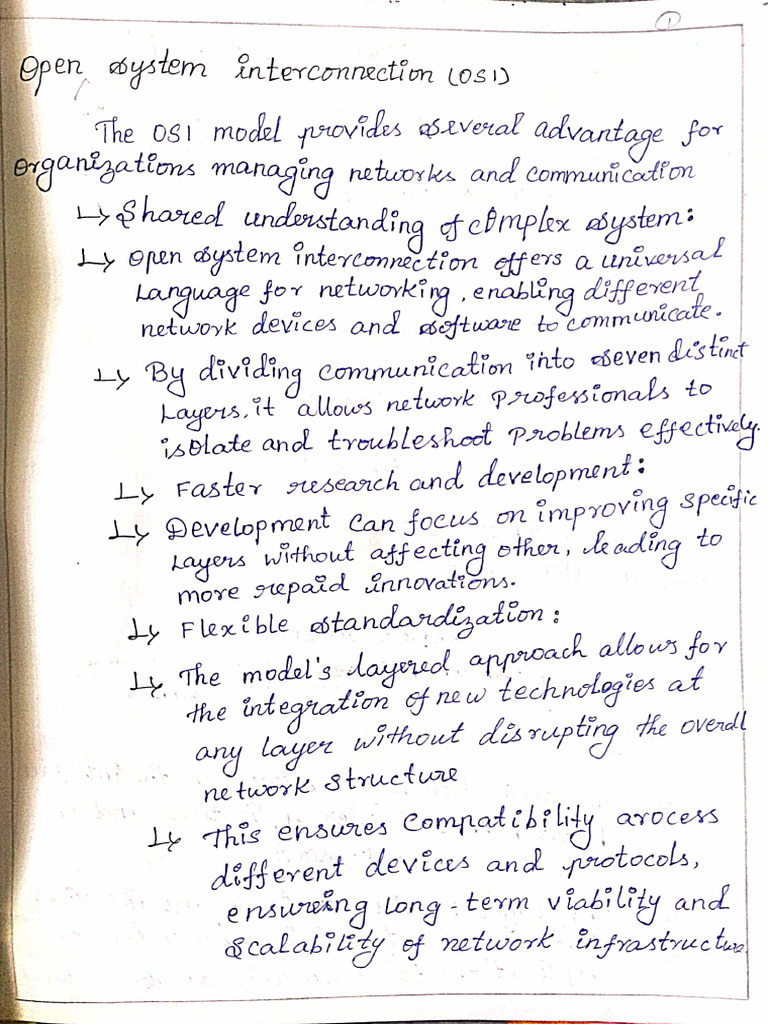 1
Open system interconnection (OSI)
The OSI model provides several advantage for
organizations managing networks and communication
↳ Shared understanding of complex system:
↳ Open system interconnection offers a universal
Language for networking, enabling different
network devices and software to communicate.
↳ By dividing communication into seven distinct
Layers, it allows network professionals to
isolate and troubleshoot problems effectively.
↳ Faster research and development:
↳ Development can focus on improving specific
Layers without affecting other, leading to
more repaid innovations.
↳ Flexible standardization:
↳ The model's layered approach allows for
the integration of new technologies at
any layer without disrupting the overall
network structure
↳ This ensures compatibility arocess
different devices and protocols,
ensureing long-term viability and
scalability of network infrastructure.